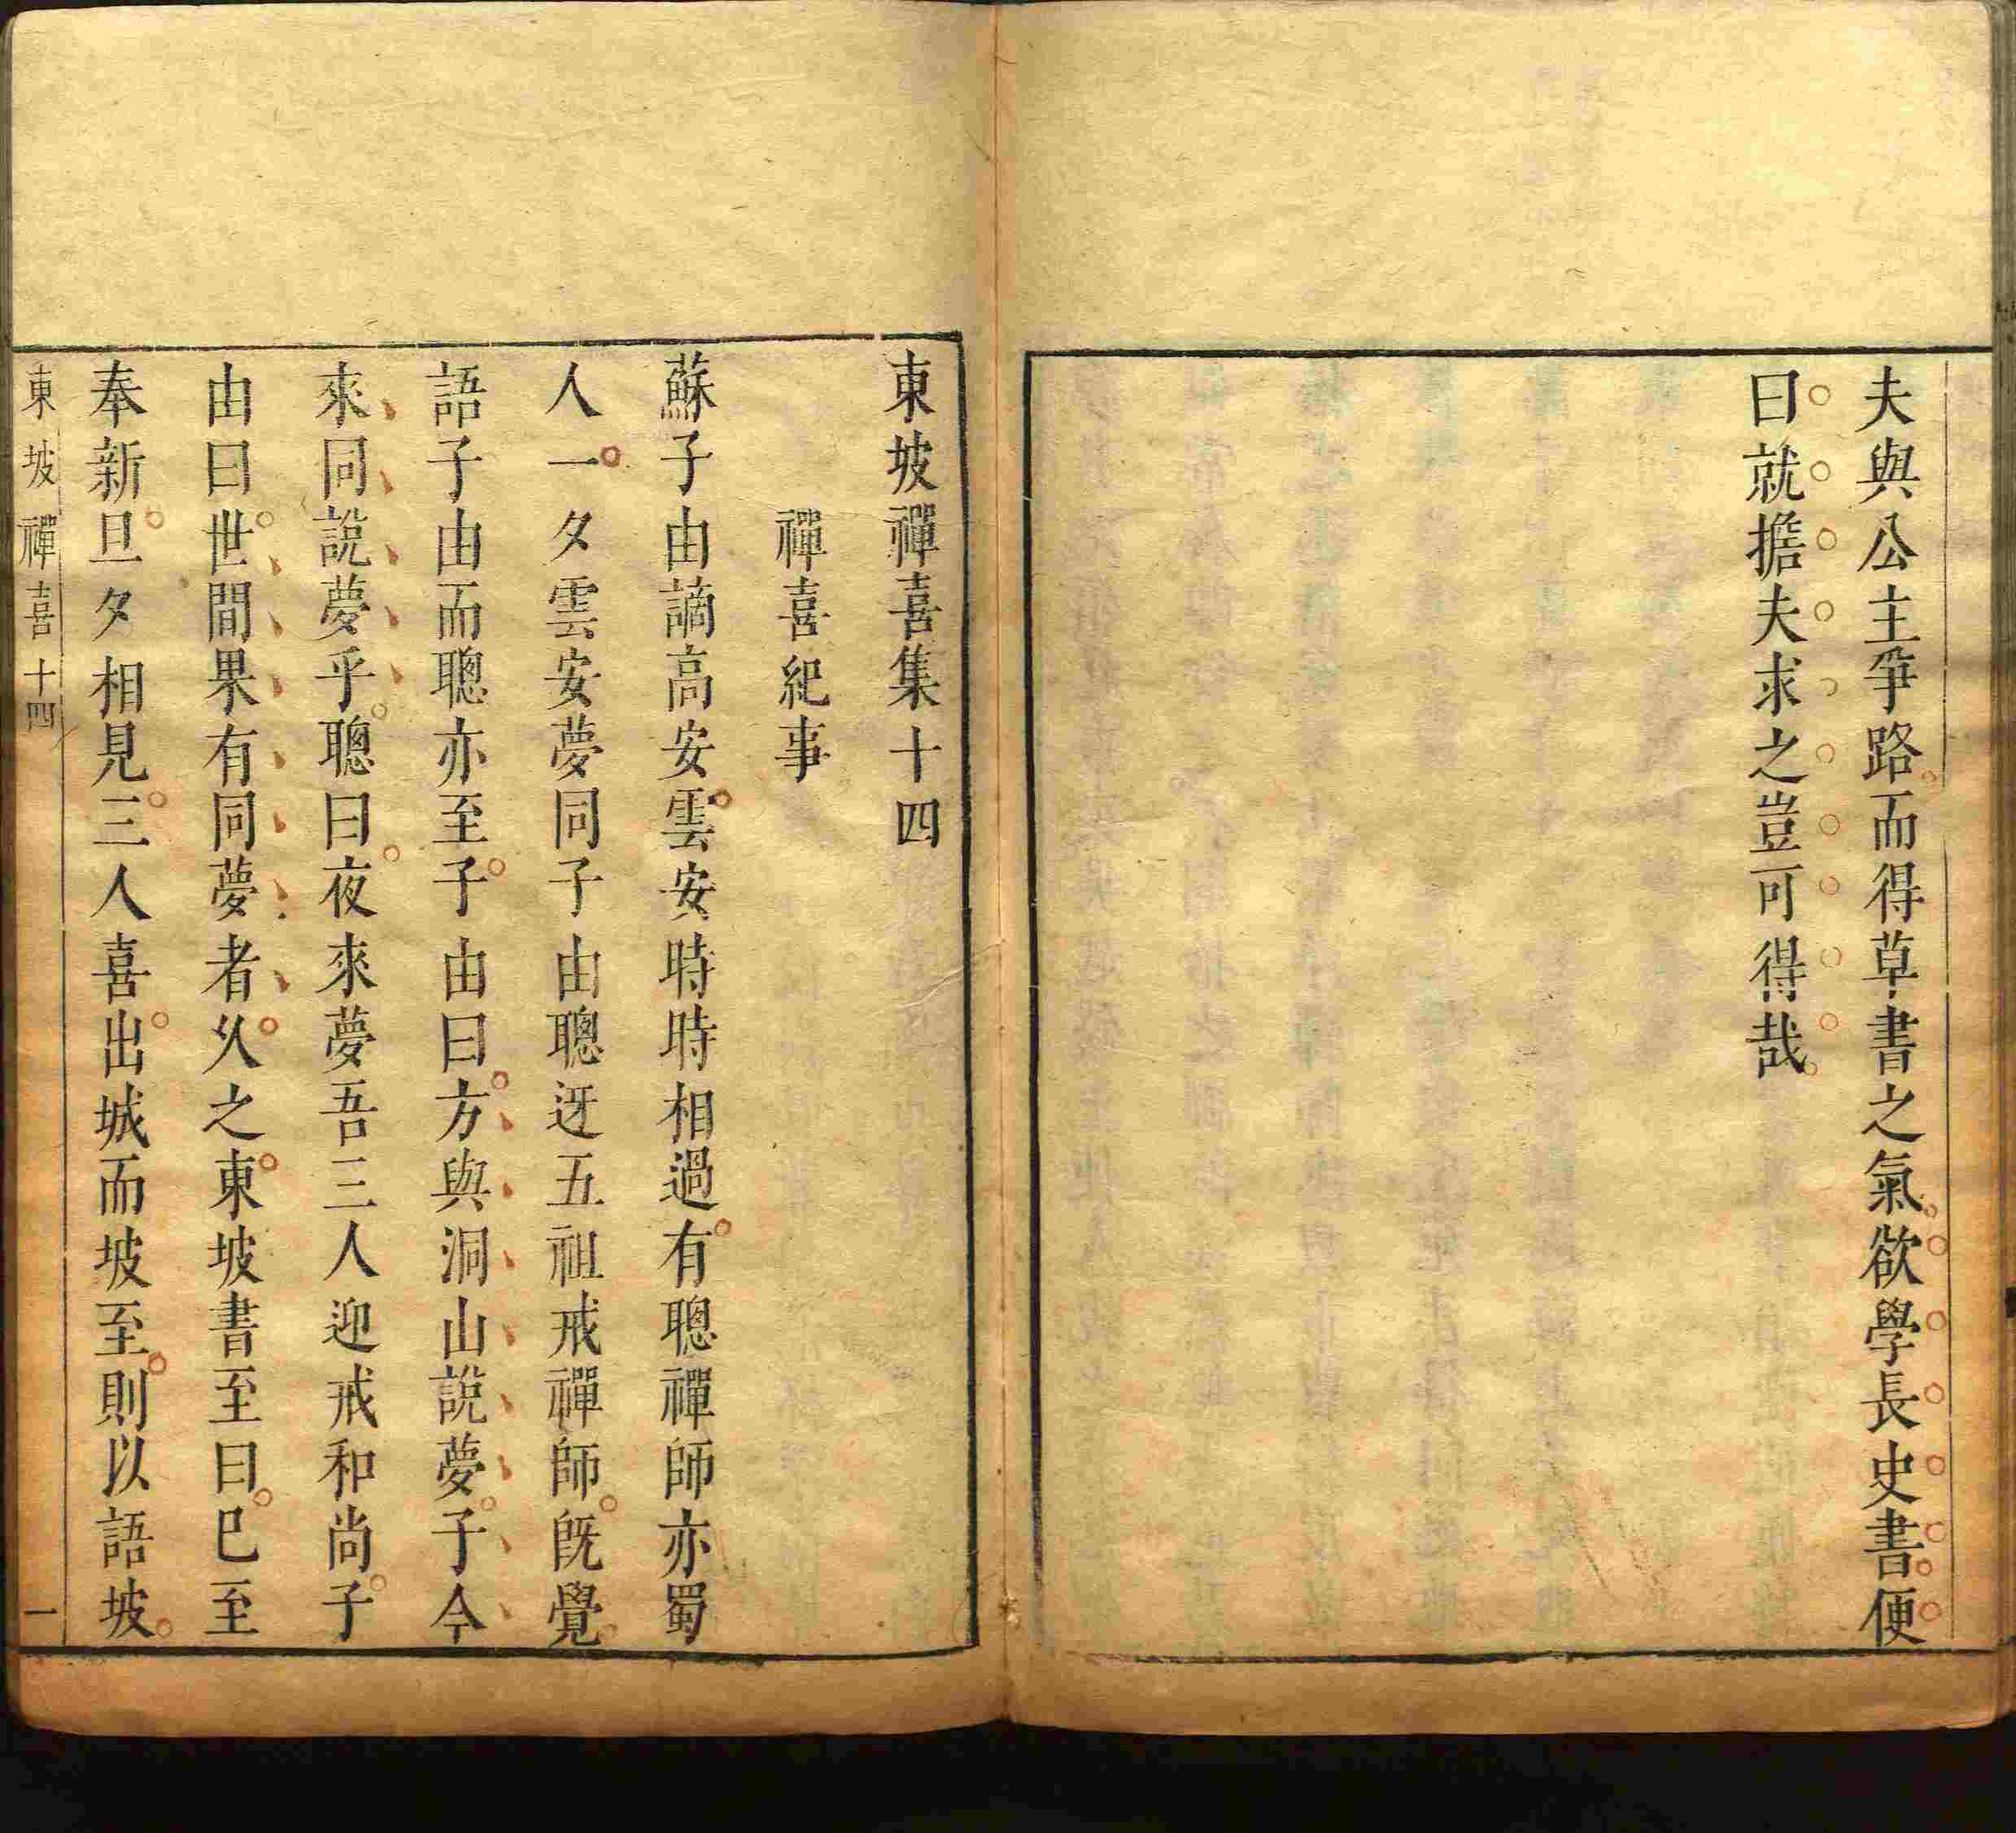 夫與公主爭路而得草書之氣欲學長史書便
曰就擔夫求之豈可得哉
東坡禪喜集十四
禪喜紀事
蘇子由謫高安雲安時時相過有聰禪師亦蜀
人一夕雲安夢同子由聰迓五祖戒禪師旣覺
語子由而聰亦至子由曰方與洞山說夢子今
來同說夢乎聰曰夜來夢吾三人迎戒和尚子
由曰世間果有同夢者久之東坡書至曰已至
奉新旦夕相見三人喜出城而坡至則以語坡
東坡禪喜十四 一